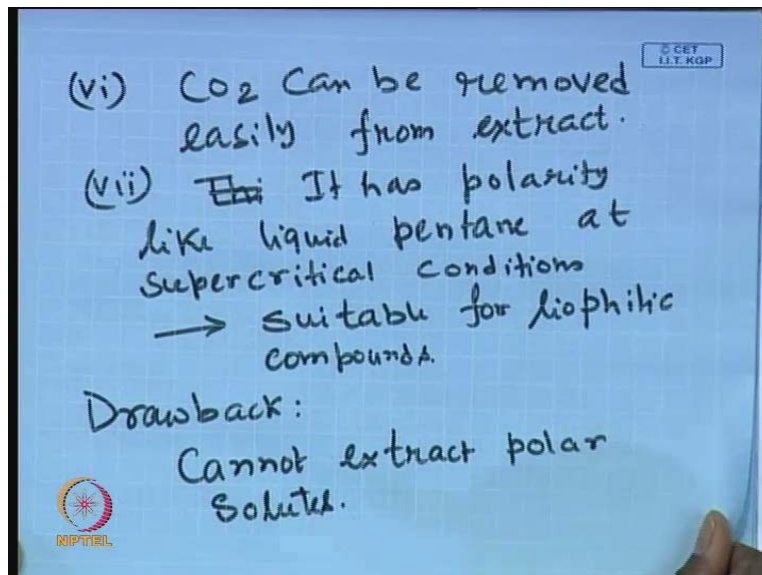 © CET
I.I.T. KGP
(vi) CO2 Can be removed
easily from extract.
(vii) Thi It has polarity
like liquid pentane at
supercritical conditions
→ suitable for liophilic
compounds.
Drawback:
Cannot extract polar
solutes.
NPTEL